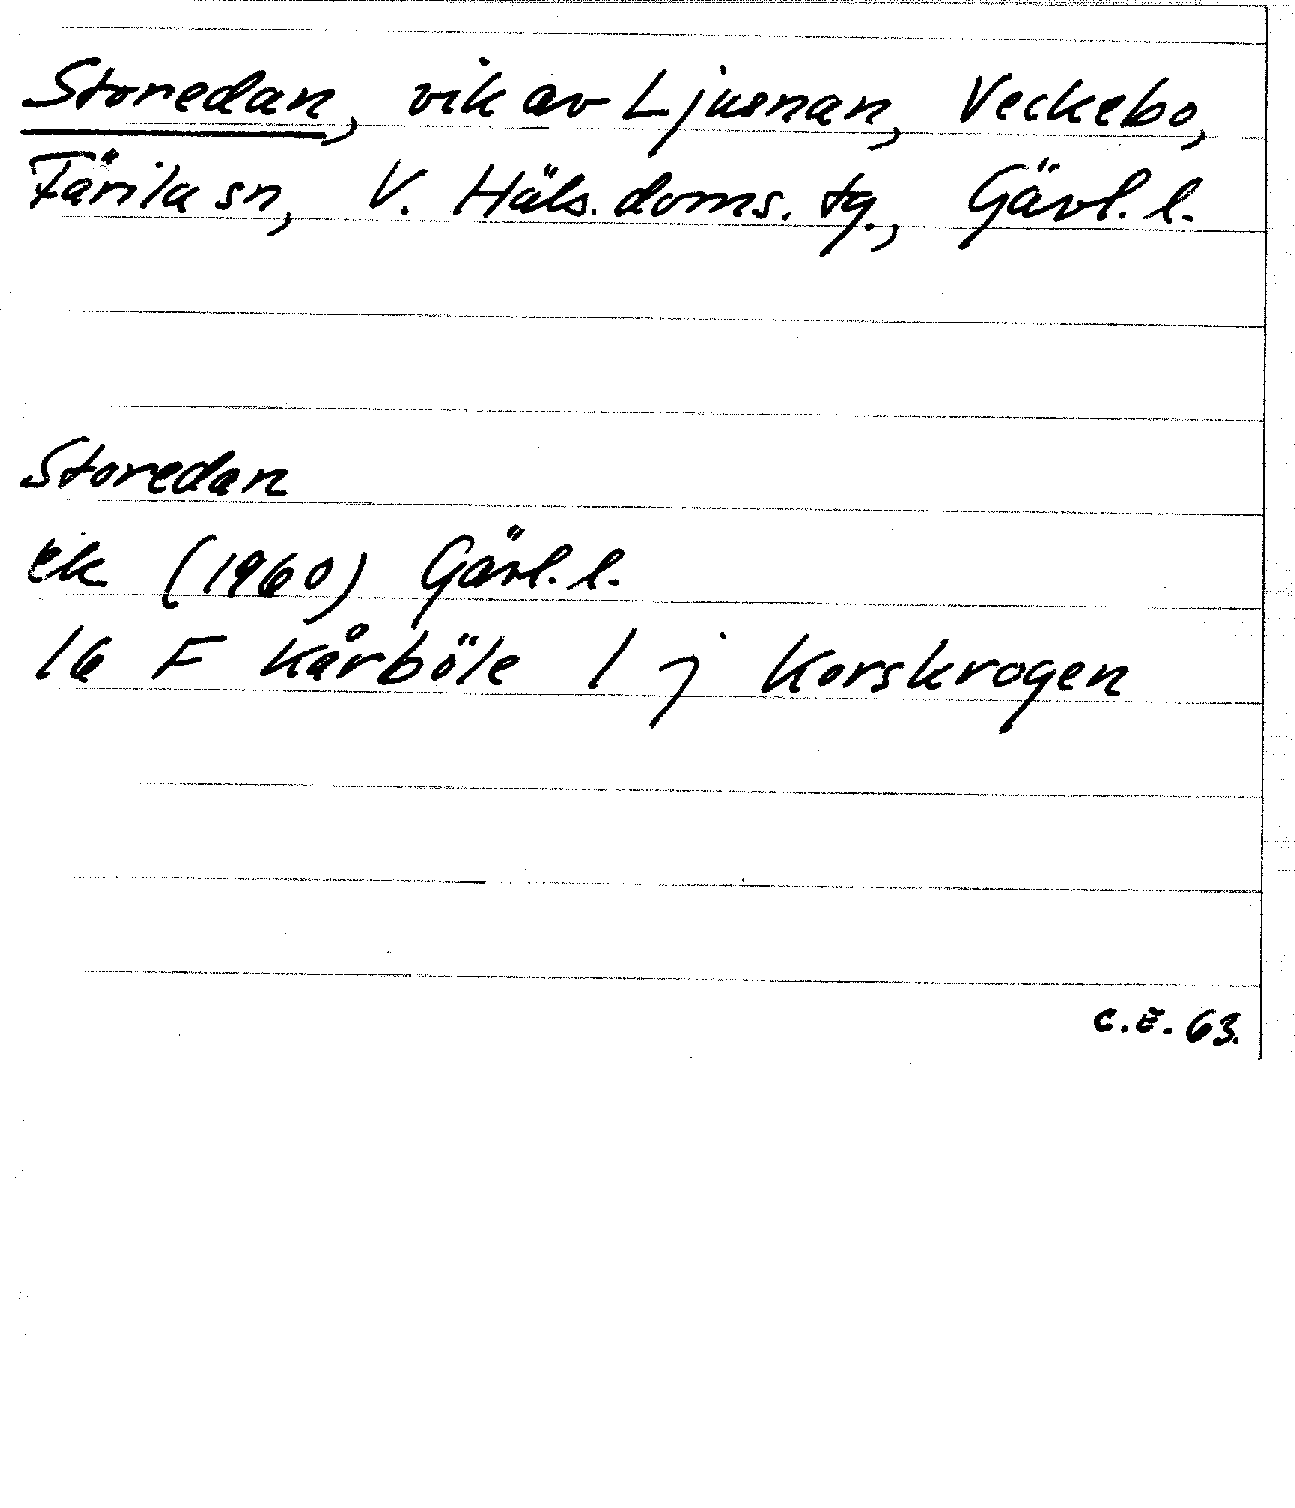 Storedan, vik av Ljusnan, Veckebo,
Färila sn, V. Häls. doms. tg., Gävl. l.
Storedan
ek (1960) Gävl. l.
16 F Kårböle 1 j Korskrogen
C.E. 63.